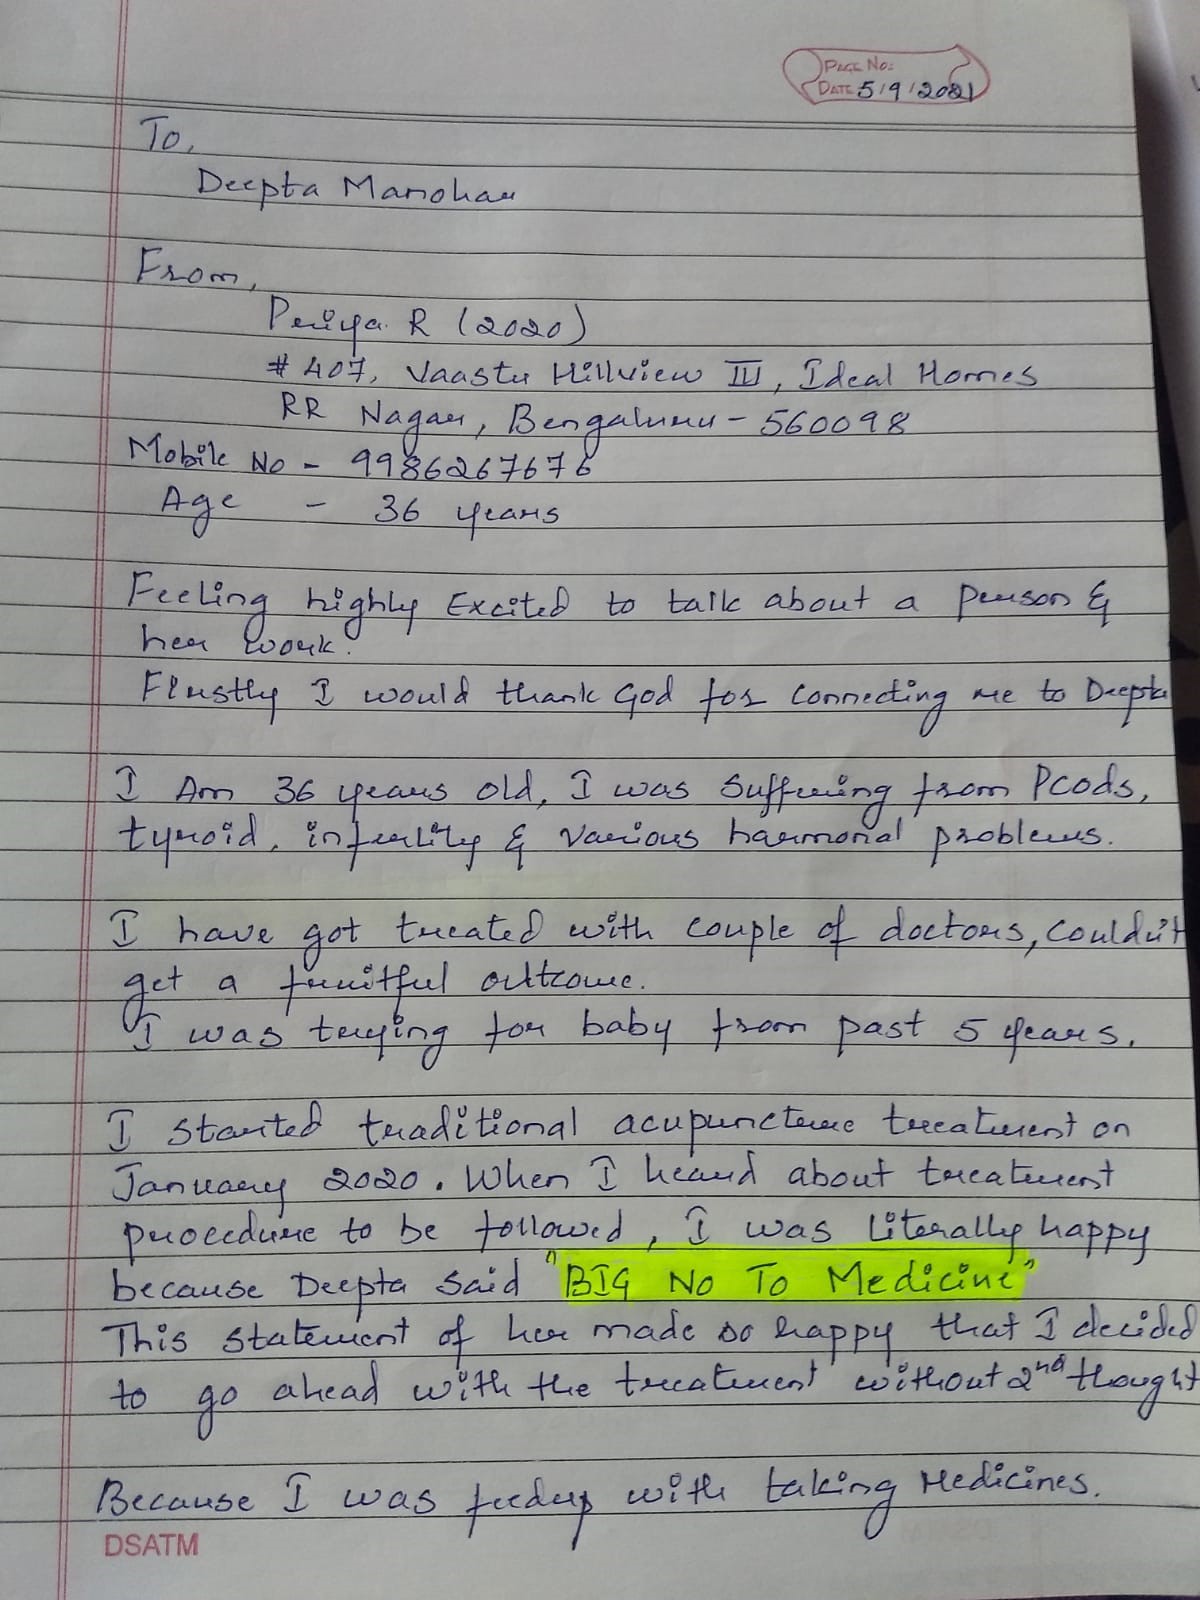 PAGE NO:
DATE 5/9/2021
To,
Deepta Manohar
From,
Priya R (2020)
# 407, Vaastu Hillview III, Ideal Homes
RR Nagar, Bengaluru - 560098
Mobile No - 9986267676
Age - 36 years
Feeling highly Excited to talk about a person &
her work.
Firstly I would thank God for connecting me to Deepta
I Am 36 years old, I was suffering from Pcods,
tyroid, infertility & various harmonal problems.
I have got treated with couple of doctors, couldn't
get a fruitful outcome.
I was trying for baby from past 5 years.
I started traditional acupuncture treatment on
January 2020. When I heard about treatment
procedure to be followed, I was literally happy
because Deepta said "BIG NO TO Medicine"
This statement of her made so happy that I decided
to go ahead with the treatment without 2nd thought
Because I was feedup with taking Medicines.
DSATM